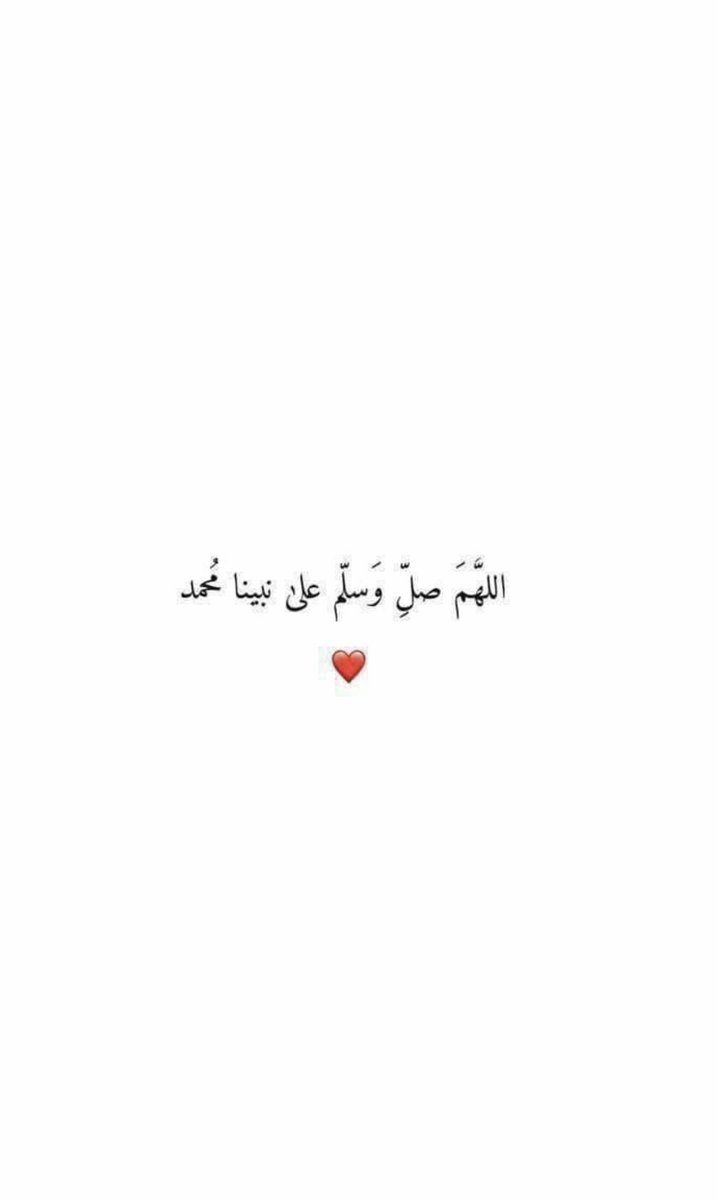 اللهَّمَ صلِّ وَسلّم علىٰ نبينا مُحمد
❤️